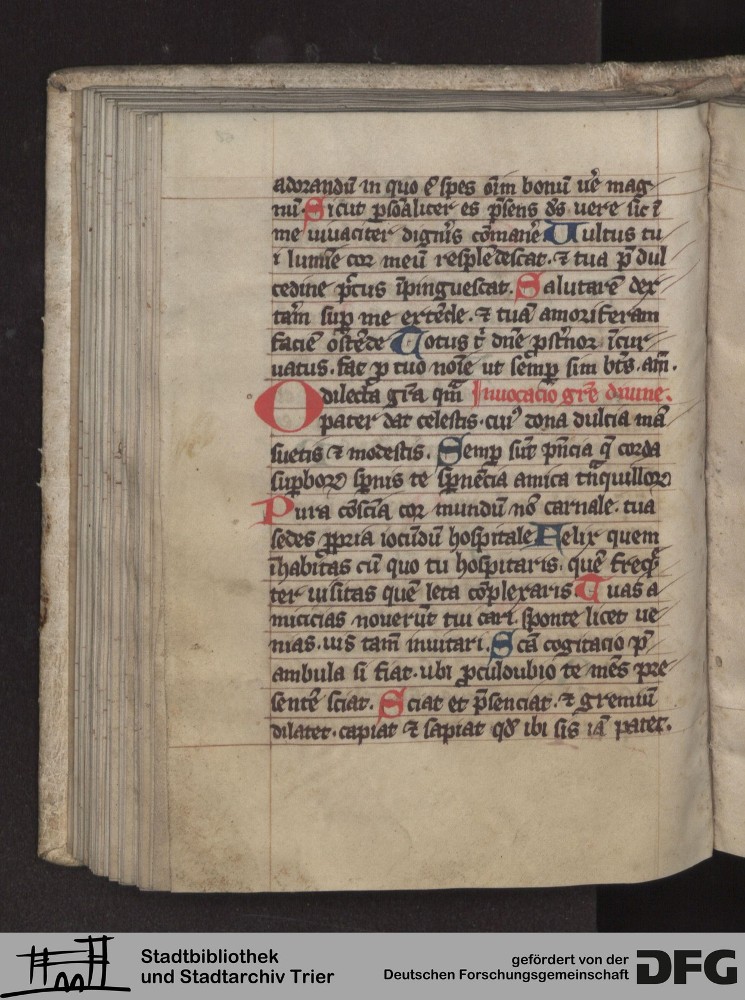 adorandū in quo ē spes oīm bonū ue᷑ mag
nū Sicut ꝑsōaliter es p̄sens ds̄ uere sic ī
me uiuaciter dignꝰis cōmane᷑ Uultus tu
i lumīe cor meū resplēdescat. ⁊ tua p̄ dul
cedine p̄ctus īpinguescat. Salutarē dex
tam̄ suꝑ me extēde. ⁊ tuā amoriferam
faciē ostēde Totus t̄ dn̄e pstͥnor īcur
uatus. fac ꝑ tuo noīe ut semꝑ sim bt̄s. am̄.
O dilecta grā qm̄ Inuocacio grē diuine.
pater dat celestis. cuiꝰ dona dulcia mā
suetis ⁊ modestis. Semꝑ sūt pͥncia q̄ corda
suꝑboꝝ spͥnis te spͥnēcia amica tnͣquilloꝝ
Pura cōscīa cor mundū nō carnale. tua
sedes ꝓpria iocūdū hospitale Felix quem
īhabitas cū quo tu hospitaris. quē freqͣ̄
ter uisitas quē leta cōplexaris. Tuas a
micicias nouerūt tui cari. sponte licet ue
nias. uis tam̄ inuitari. Scā cogitacio p̄
ambula si fiat. ubi ꝓculdubio te mēs pre
sentē sciat. Sciat et p̄senciat. ⁊ gremiū
dilatet. capiat ⁊ sapiat qd̄ ibi sis iā patet.
Stadtbibliothek
und Stadtarchiv Trier
gefördert von der
Deutschen Forschungsgemeinschaft DFG